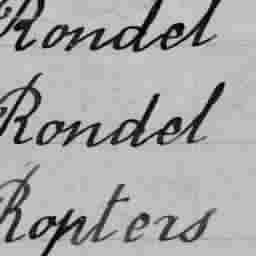 Rondel
Rondel
Ropters